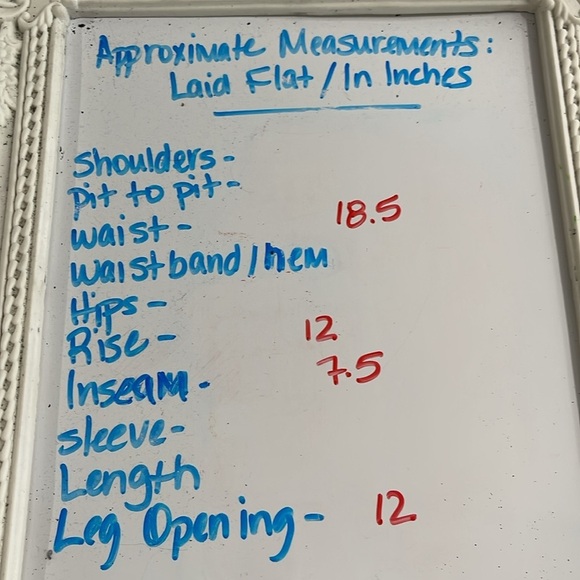 Approximate Measurements:
Laid Flat / In Inches
Shoulders -
Pit to pit -
waist - 18.5
waistband / hem
Hips -
Rise - 12
Inseam - 7.5
sleeve -
Length
Leg Opening - 12